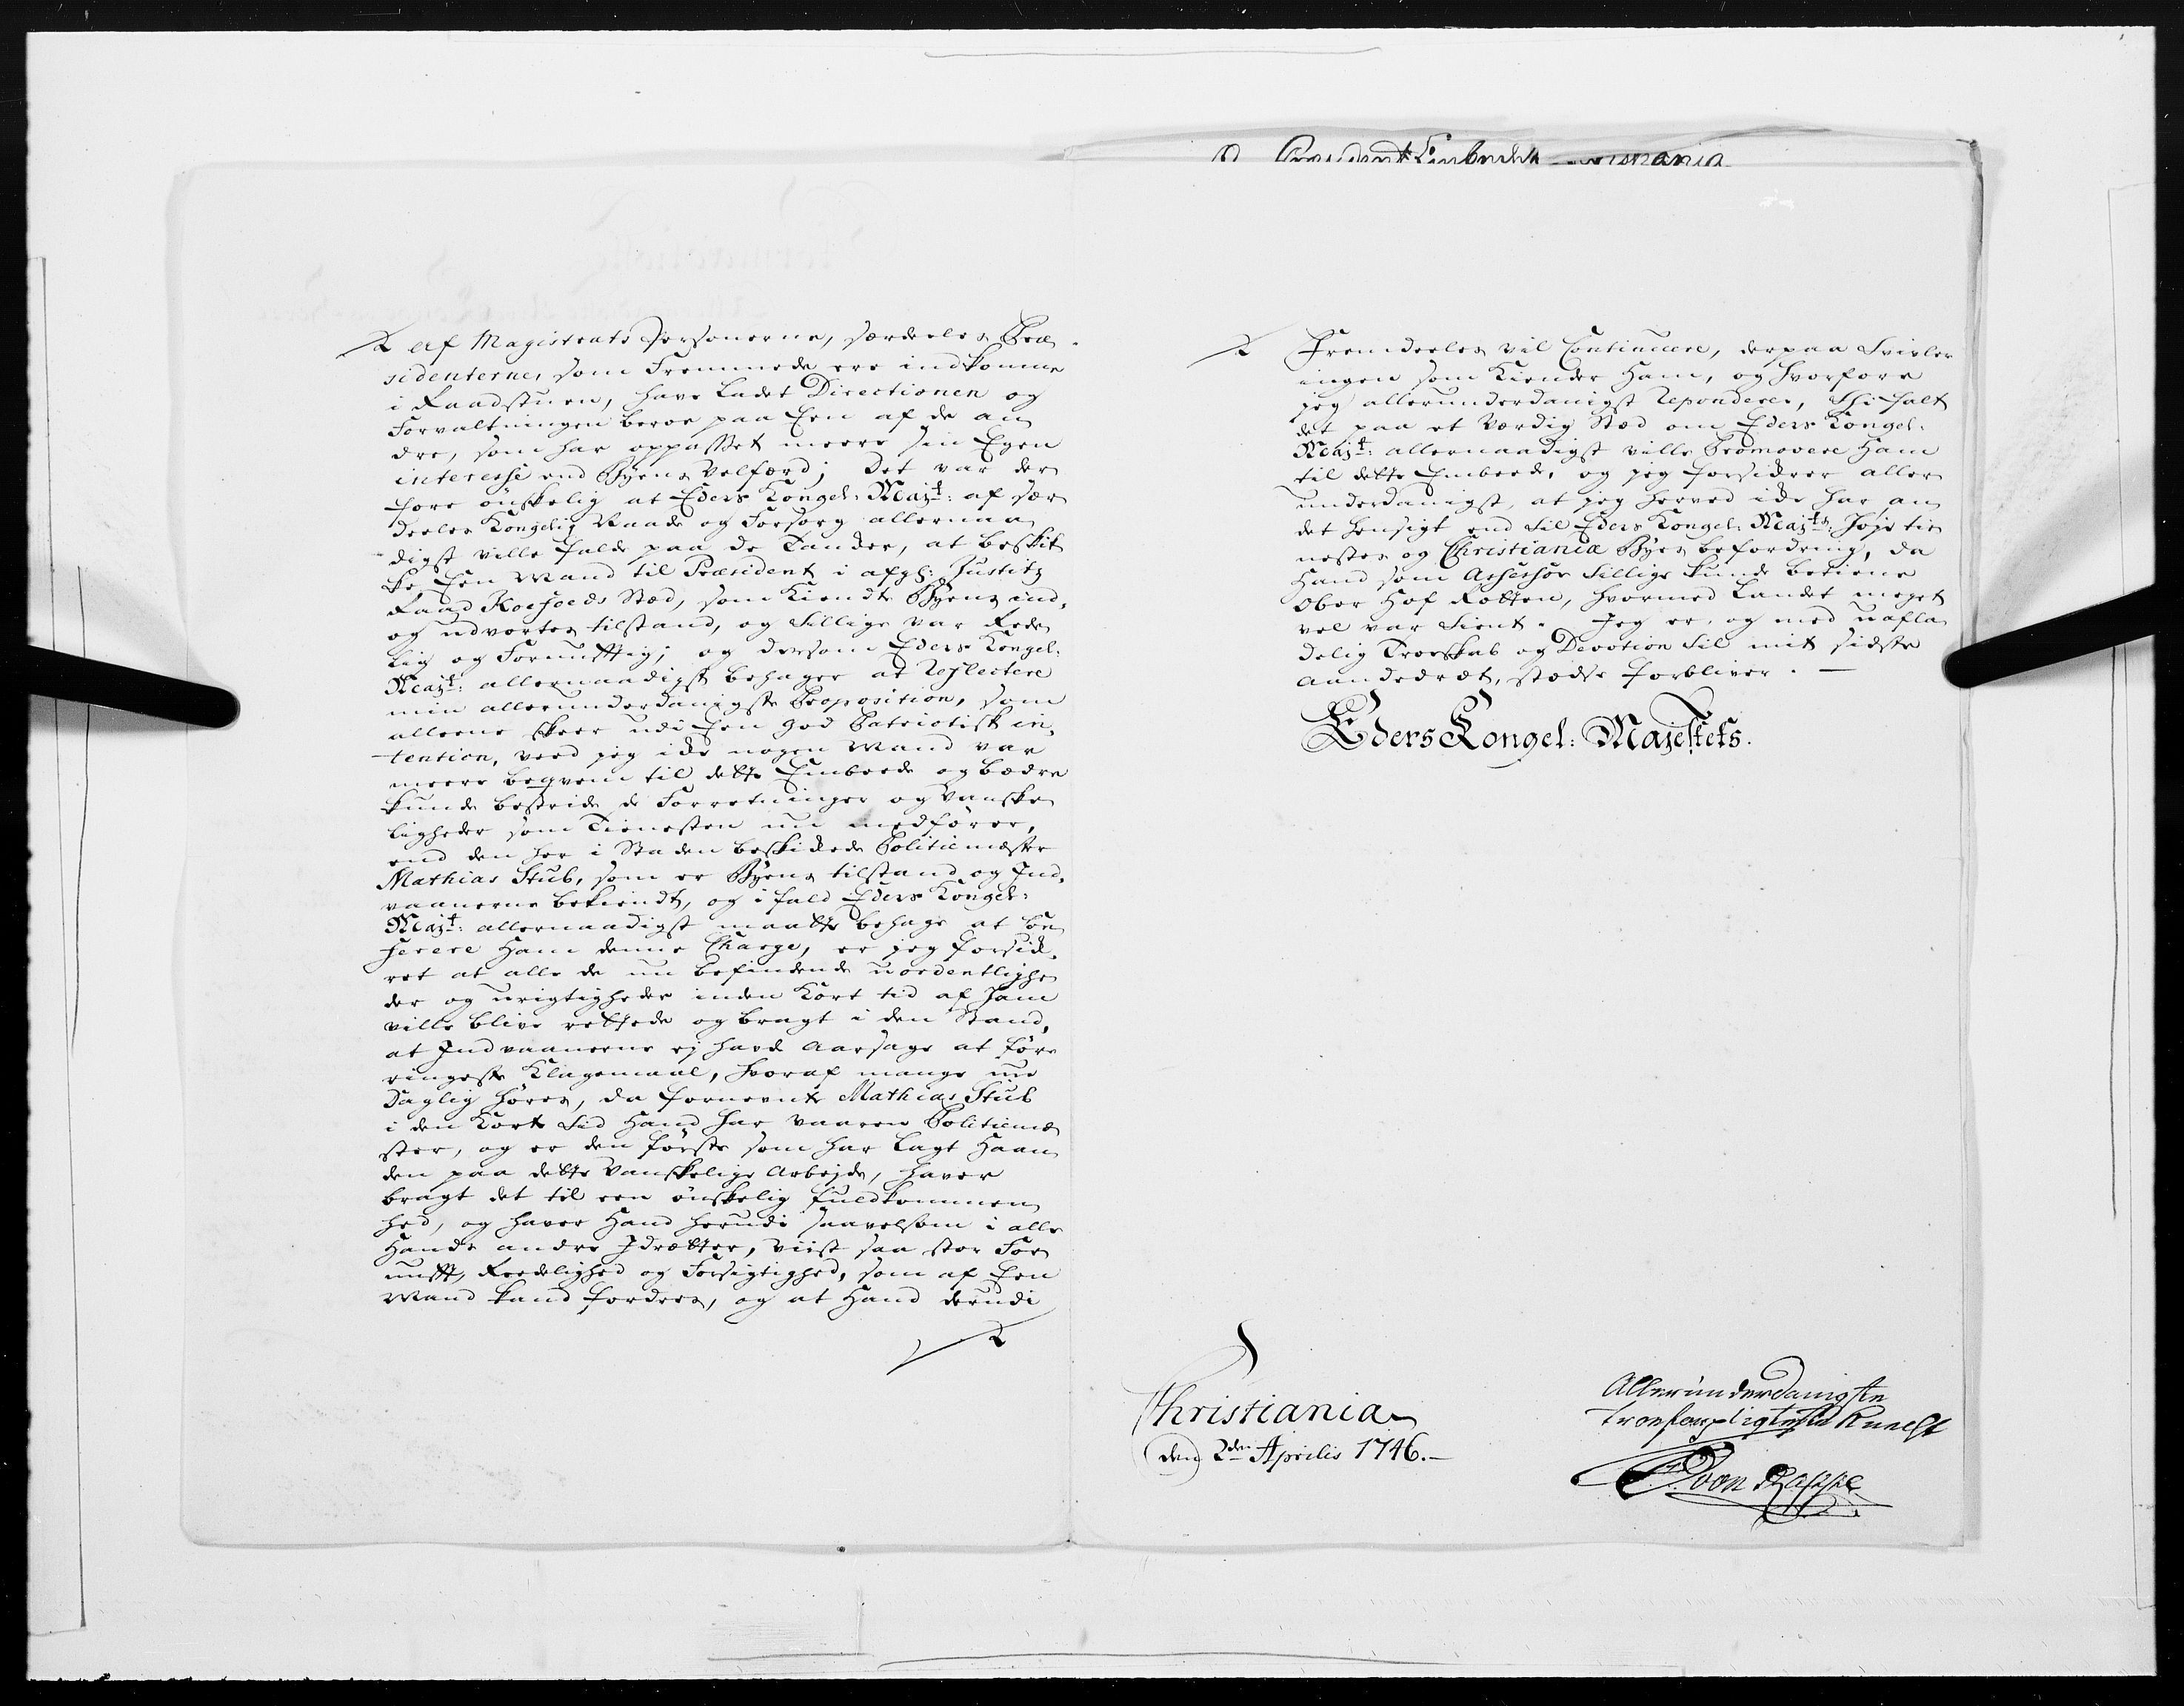 af Magistrats Personerne, særdeeles Præ
sidenterne, som Fremmede ere indkomne
i Raadstuen, have ladet Directionen og
Forvaltningen beroe paa Een af de an
dre, som har oppasset meere sin Egen
interesse end Byens Velfærd; det var der
fore ønskelig at Eders Kongel: Majt: af sær
deeles Kongelig Naade og Forsorg allernaa
digst ville falde paa de Tancker, at beskik
ke Een Mand til Præsident i afgl: Justitz
Raad Koefoeds Stæd, som kiendte Byens ind,
og udvortes tilstand, og tillige var Rede
lig og Fornufftig; og dersom Eders Kongel:
Majt: allernaadigst behager at Reflectere
min allerunderdanigste Proposition, som
alleene skeer udi Een god Patriotisk in,
tention, veed jeg icke nogen Mand var
meere beqvem til dette Embede og bædre
kunde bestride de Forretninger og Vanske
ligheder som Tienesten nu medfører,
end den her i Staden beskickede Politiemester
Mathias Stub, som er Byens tilstand og Ind,
vaanerne bekiendt, og i fald Eders Kongel:
Majt: allernaadigst maatte behage at Con
ferere Ham denne Charge, er jeg forsik,
ret at alle de nu befindende uordentlighe
der og urigtigheder inden kort tid af Ham
ville blive rettede og bragt i den Stand,
at Indvaanerne ej havde Aarsage at føre
ringeste Klagemaal, hvoraf mange nu
daglig høres, da fornevnte Mathias Stub
i den korte Tid Hand har vaaren Politieme
ster, og er den første som har lagt Haan
den paa dette vanskelige Arbejde, haver
bragt det til een ønskelig fuldkommen
hed, og haver Hand herudi saavelsom i alle
Hands andre Idrætter, viist saa stor For
nufft, Reedelighed og Forsigtighed, som af Een
Mand kand fordres, og at Hand derudi
Fremdeeles vil Continuere, derpaa tvivler
ingen som kiender Ham, og hvorfore
jeg allerunderdanigst Reponderer, Thi falt
det paa et værdig Stæd om Eders Kongel:
Majt: allernaadigst ville Promovere Ham
til dette Embede, og jeg forsikrer aller
underdanigst, at jeg herved icke har an
det hensigt end til Eders Kongel: Majts: høje tie
nestes og Christiania Byes befordring, da
Hand som Assessor tillige kunde betiene
Ober Hof Retten, hvormed Landet meget
vel var tient. Jeg er, og med uafla
delig Troeskab og Devotion til mit sidste
Aandedræt, stedse forbliver. —
Eders Kongel: Majestets.
Christiania
den 2den Aprilis 1746.—
Allerunderdanigste
troepligtigste Knecht
von Rappe